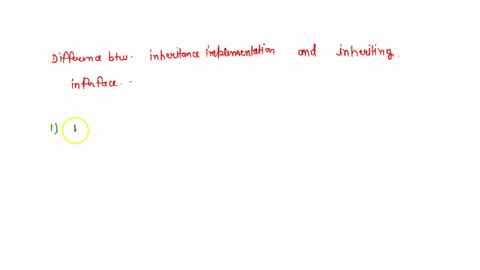 Difference btw. inheritance implementation and inheriting.
interface. -
1) I